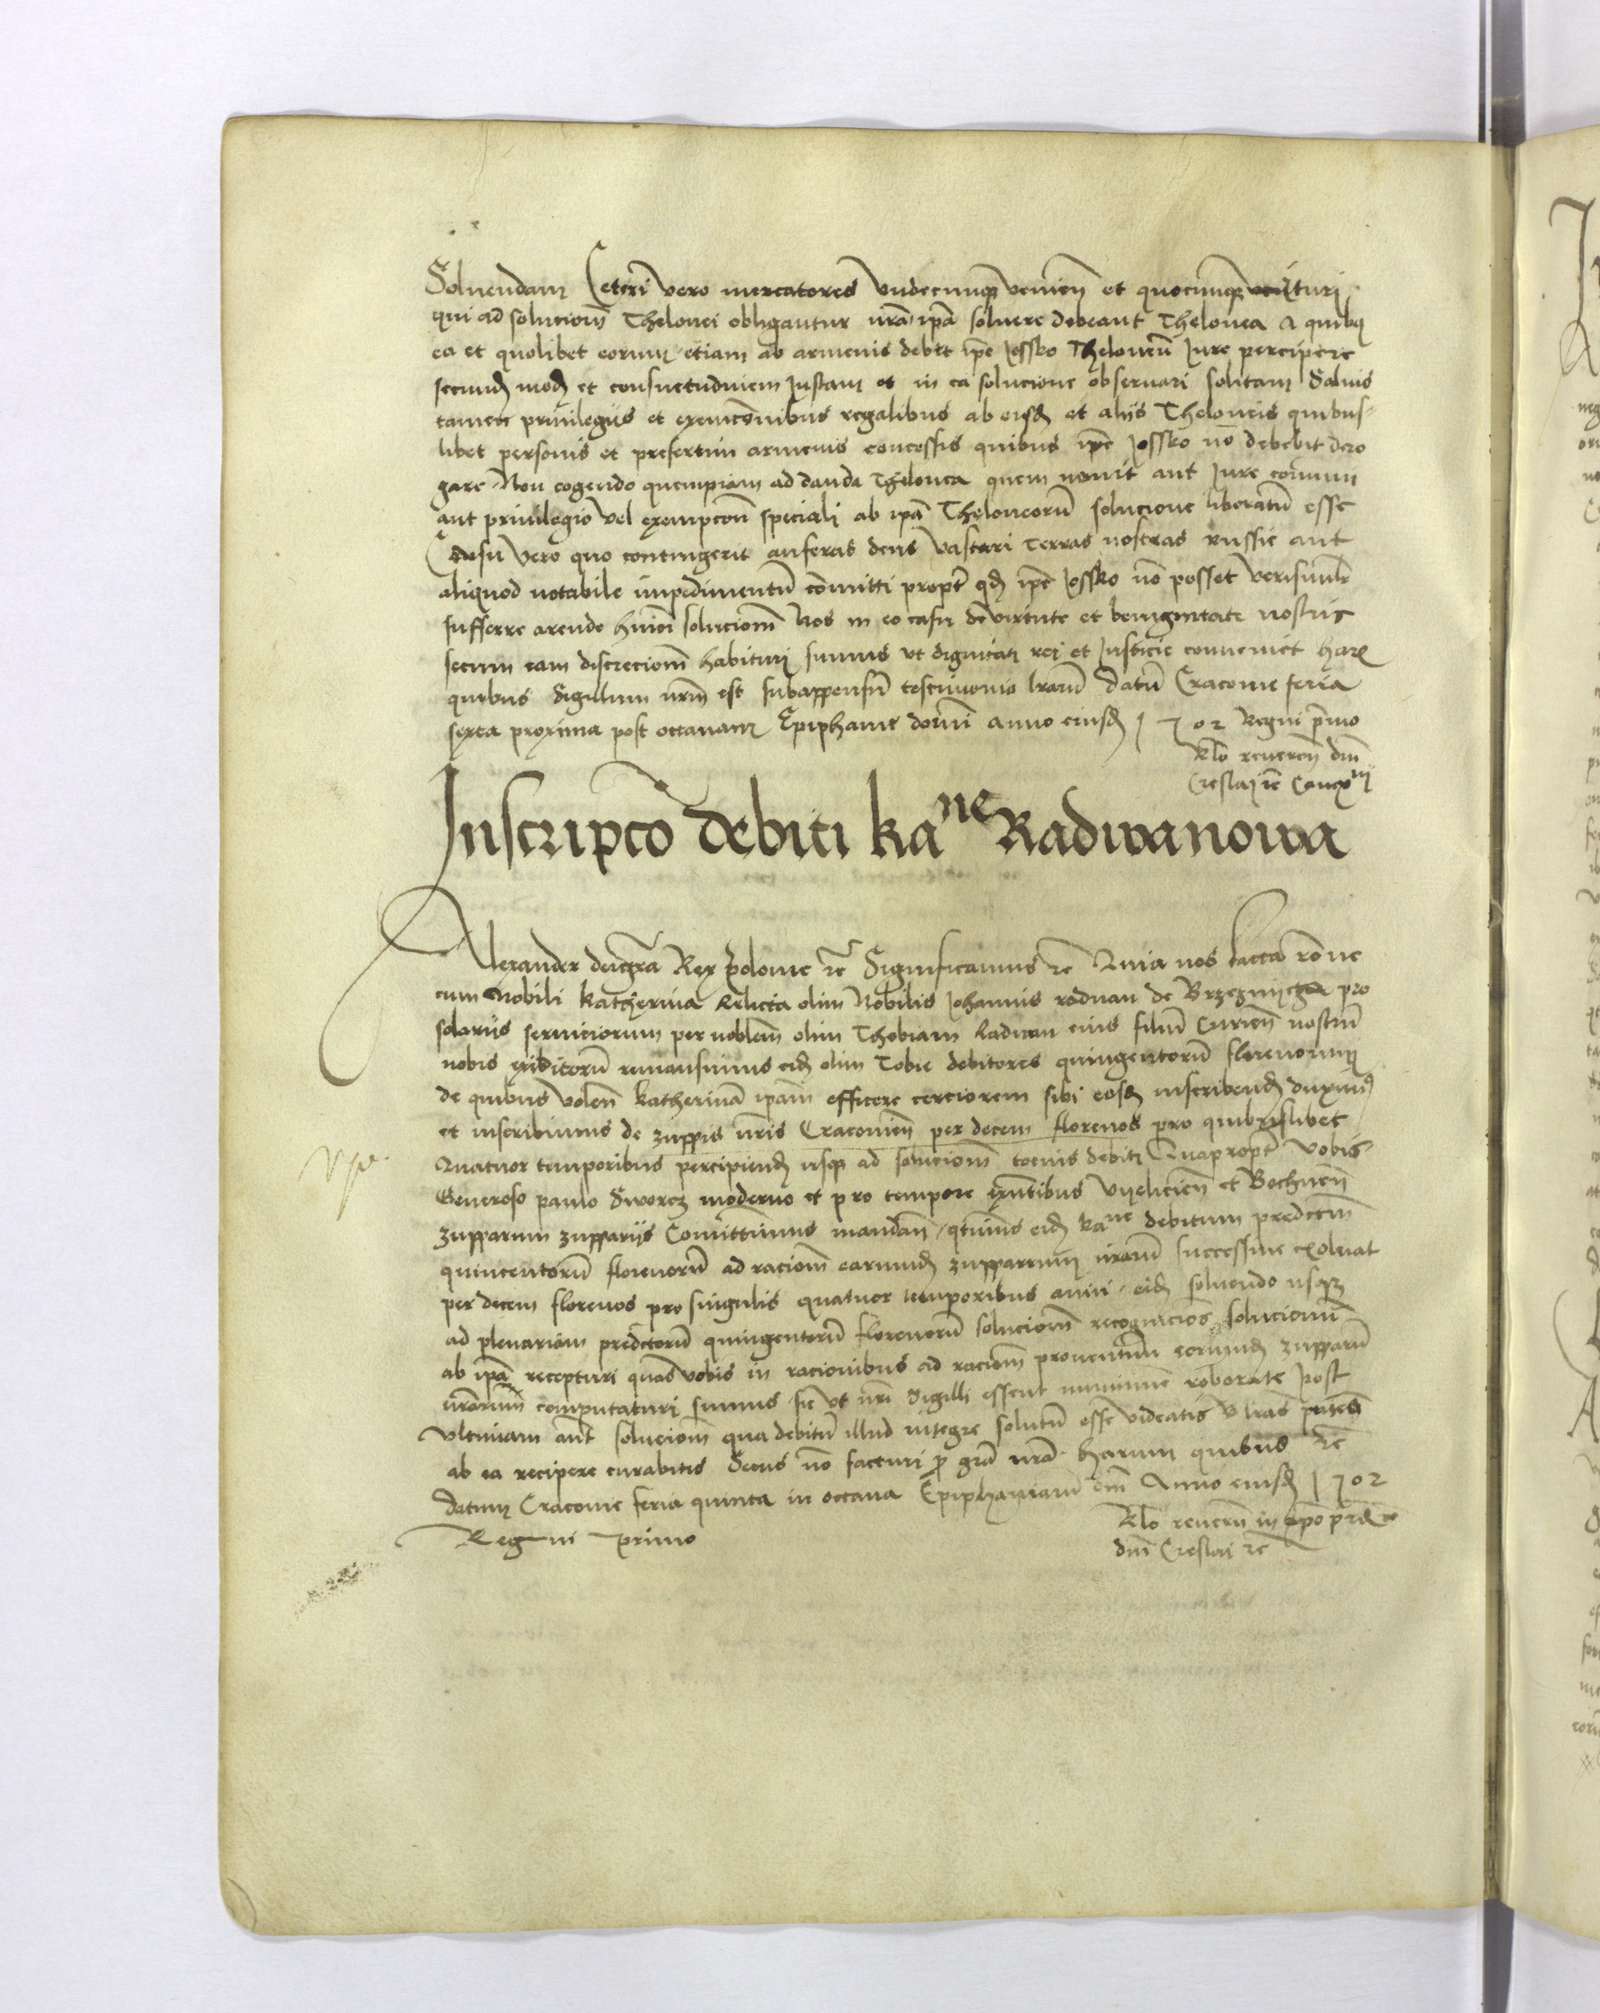 Soluendam Ceteri vero mercatores vndecunque venien̄ et quocunque ituri
qui ad solucionē Thelonei obligantur nrā ipā soluere debeant Thelonea A quibus
ea et quolibet eorum etiam ab armenis debet ipē Jossko Theloneū Jure percipere
secundū modū et consuetudinem Justam et in ea solucione obseruari solitam Saluis
tamen priuilegiis et exempcionibus regalibus ab eisdē et aliis Theloneis quibus-
libet personis et presertim armenis concessis quibus ipē Jossko nō debebit dero
gare Non cogendo quempiam ad danda Thelonea quem nouit aut Jure cōmuni
aut priuilegio vel exempcōni speciali ab ipā Theloneorū solucione liberatū esse
Casu vero quo contingerit auferas deus vastari Terras nostras russie aut
aliquod notabile impedimentū cōmitti propt̄ qd̄ ipē Jossko nō posset verisimilr̄
sufferre arende huiōi solucionē Nos in eo casu de virtute et benignitate nostris
secum eam discrecionē habituri sumus vt dignitati rei et Justicie conueniet Harū
quibus Sigillum nrm̄ est subappensū testimonio lrarū Datū Cracouie feria
sexta proxima post octauam Epiphanie domini Anno eiusdē 1502 Regni primo
Rlō reueren̄ dnī
Creslai vice Cancrii
Inscripcō debiti kane Radwanowa
Alexander dei grā Rex polonie rē Significamus rē Quia nos facta rōne
cum Nobili Katherina Relicta olim Nobilis Johannis raduan de Brzeznycza pro
solariis seruiciorum per noblem̄ olim Thobiam Raduan eius filiū Curien̄ nostrū
nobis exibitorū remansimus eidē olim Tobie debitores quingentorū florenorum
de quibus volen̄ Katherinā ipam̄ efficere cerciorem sibi eosdē inscribendū duximus
et inscribimus de zuppis nrīs Cracouien̄ per decem florenos pro quibuslibet
Quatuor temporibus percipiendū usque ad solucionē tocius debiti Quapropt̄ vobis
Generoso paulo Sworcz moderno et pro tempore existn̄tibus vyelicien̄ et Bochnen̄
zupparum zuppariis Comittimus mandan̄ qtinus eidē kane debitum predictū
quincentorū florenorū ad racionē earundē zupparum nrārū successiue exoluat
per decem florenos pro singulis quatuor temporibus anni eidē soluendo usque
ad plenariam predictorū quingentorū florenorū solucionē recogniciōs solucionū
ab ipā recepturi quas vobis in racionibus ad racionē prouentuū eorundē zupparū
nrārum computaturi sumus sic vt nrī Sigilli essent munimine roborate Post
vltimam aut̄ solucionē qua debitū illud integre solutū esse videatis lrās pn̄tes
ab ea recipere curabitis Secus nō facturi p̄ grā nrā Harum quibus rē
datum Cracouie feria quinta in octaua Epiphaniarū dnī Anno eiusdē 1502
Regni primo
Rlō reueren̄ in xpō pris
dnī Creslai rē